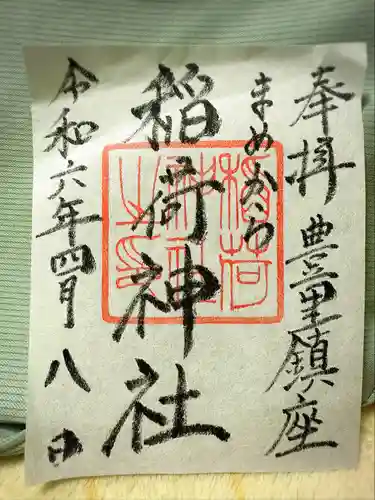 奉拝 豊里鎮座
まめだの
稲荷神社
令和六年四月八日
稲荷
神社
之印